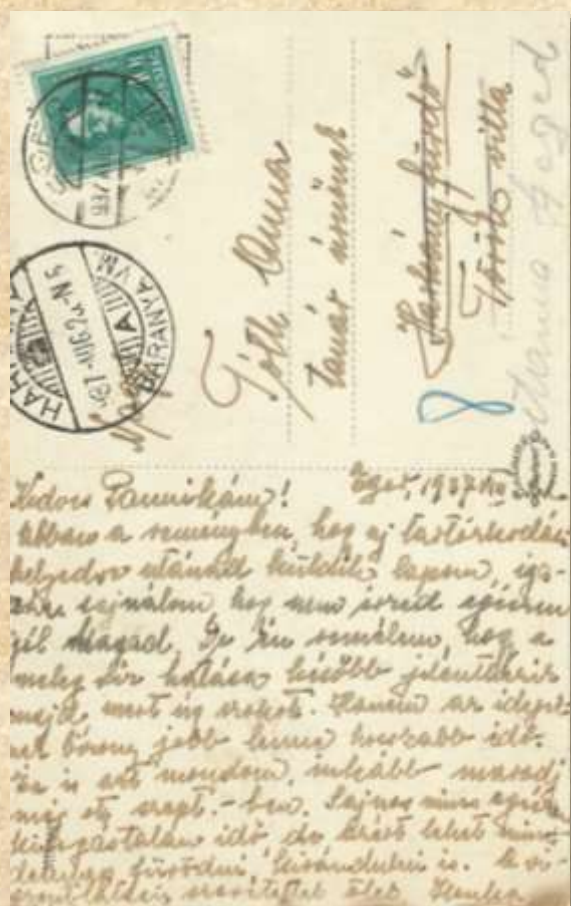 HARKÁNY
BARANYA VM.
Tóth Anna
tanár úrnőnek
Harkányfürdő
Török villa
8
Kedves Pannikám! Eger, 1937
Abban a reményben, hogy uj tartózkodási
helyedre utánad küldik lapom, iga-
zán sajnálom, hogy nem érzed egészen
jól magad. De én remélem, hogy a
meleg víz hatása később jelentkezik
majd, mert úgy szokott. Hanem az idegei-
jobb lenne hosszabb idő.
Én is azt mondom, inkább maradj
még ott szept.-ben. Sajnos nincs egészen
kifogástalan idő, de azért lehet min-
dennap fürödni, kirándulni is. A vi-
szontlátásig szeretettel ölel